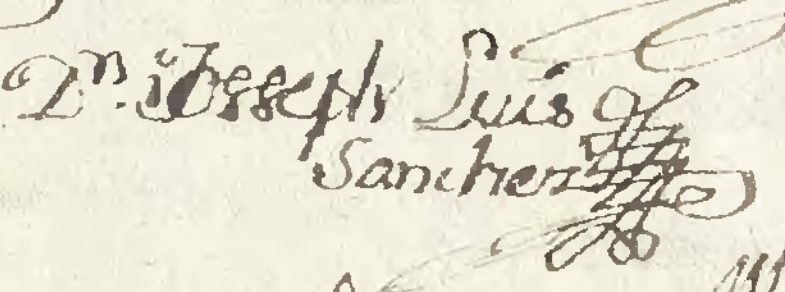 Dn. Josseph Luis
Sanchez